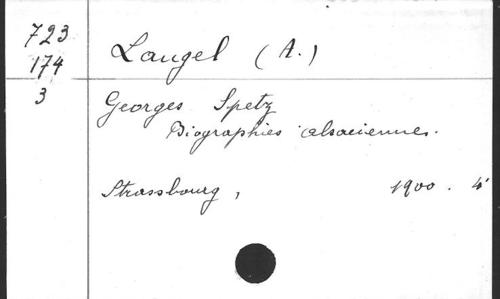 723
174
3
Laugel (A.)
Georges Spetz
Biographies alsaciennes.
Strassbourg, 1900. 4°